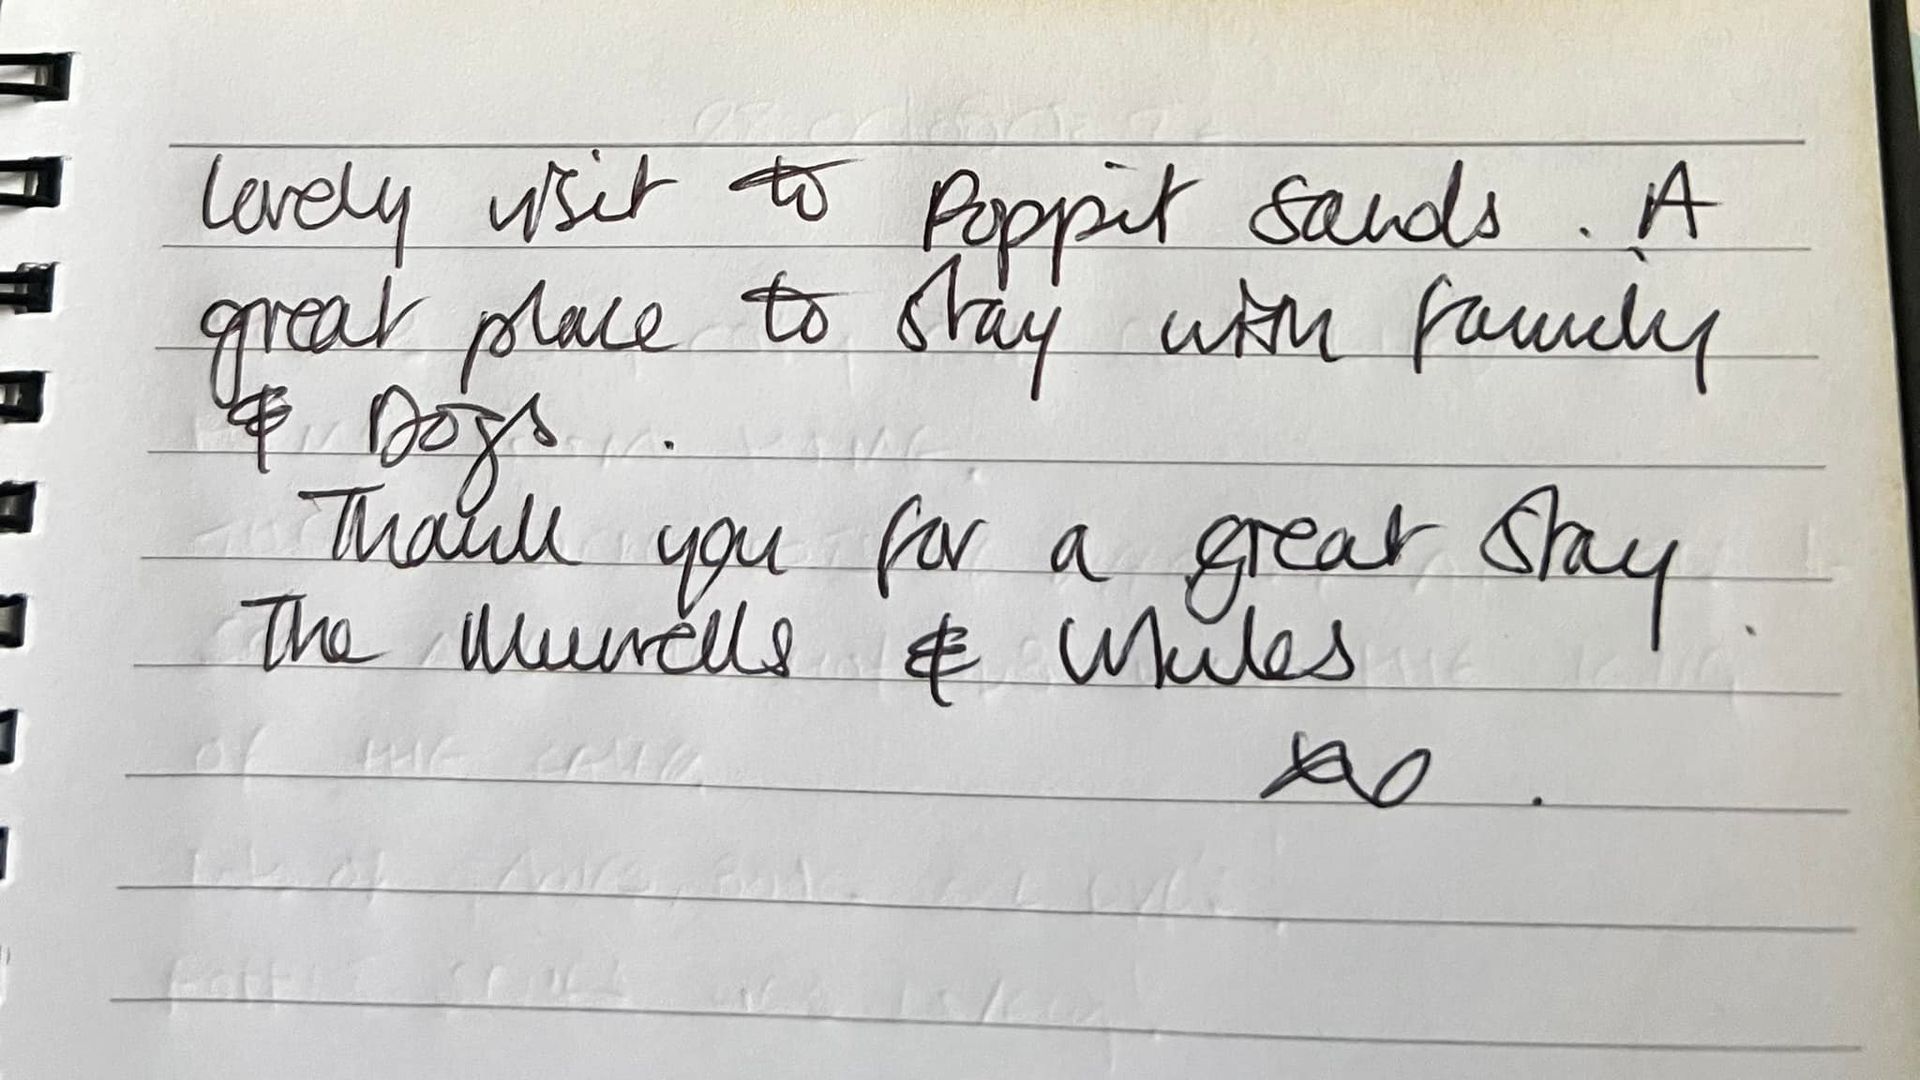 Lovely visit to Poppit Sands. A
great place to stay with family
& Dogs.
Thank you for a great stay.
The &